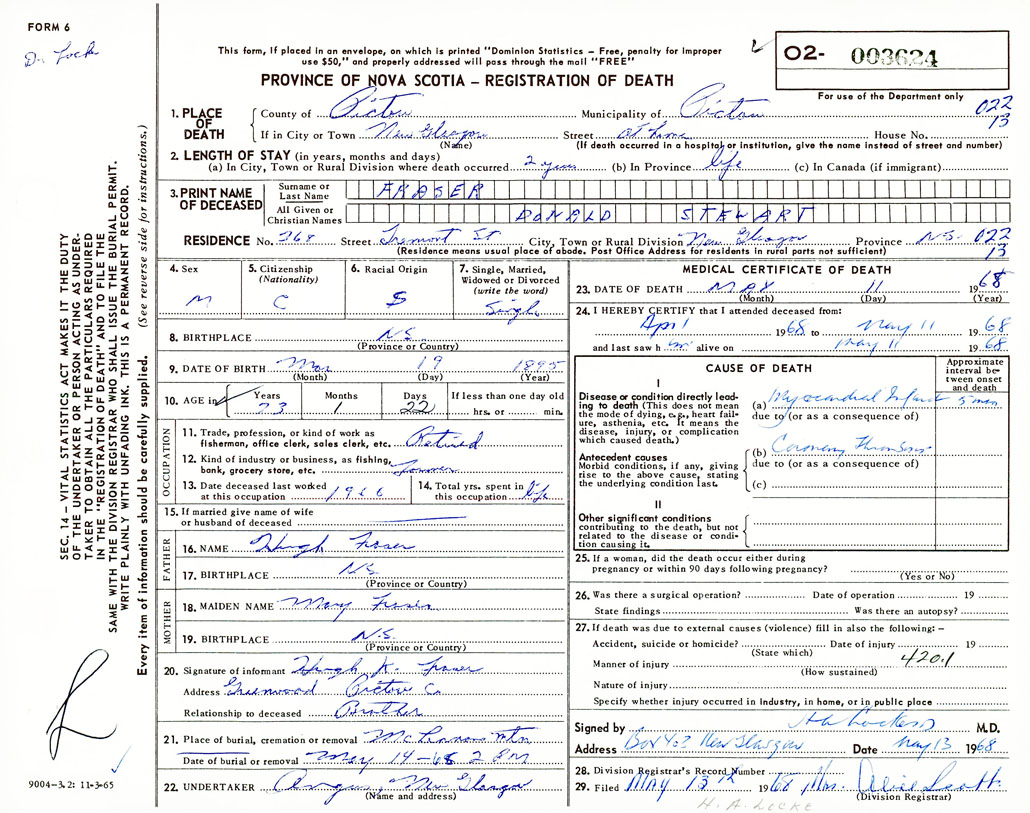 FORM 6
Dr Locke
This form, if placed in an envelope, on which is printed "Dominion Statistics – Free, penalty for improper
use $50," and properly addressed will pass through the mail "FREE"
PROVINCE OF NOVA SCOTIA – REGISTRATION OF DEATH
O2- 003624
For use of the Department only
022
13
1. PLACE OF DEATH
County of Pictou Municipality of Pictou
If in City or Town New Glasgow Street at home House No.
(Name) (If death occurred in a hospital or institution, give the name instead of street and number)
2. LENGTH OF STAY (in years, months and days)
(a) In City, Town or Rural Division where death occurred 2 years (b) In Province life (c) In Canada (if immigrant)
3. PRINT NAME OF DECEASED
Surname or Last Name FRASER
All Given or Christian Names DONALD STEWART
RESIDENCE No. 368 Street Tremont St City, Town or Rural Division New Glasgow Province N.S. 022
13
(Residence means usual place of abode. Post Office Address for residents in rural parts not sufficient)
4. Sex M
5. Citizenship (Nationality) C
6. Racial Origin S
7. Single, Married, Widowed or Divorced (write the word) Single
8. BIRTHPLACE N.S.
(Province or Country)
9. DATE OF BIRTH Mar 19 1895
(Month) (Day) (Year)
10. AGE in Years 73 Months 1 Days 22 If less than one day old hrs. or min.
OCCUPATION
11. Trade, profession, or kind of work as
fishermen, office clerk, sales clerk, etc. Retired
12. Kind of industry or business, as fishing,
bank, grocery store, etc. Farmer
13. Date deceased last worked
at this occupation 1966
14. Total yrs. spent in
this occupation life
15. If married give name of wife
or husband of deceased
FATHER
16. NAME Hugh Fraser
17. BIRTHPLACE N.S.
(Province or Country)
MOTHER
18. MAIDEN NAME Mary Fraser
19. BIRTHPLACE N.S.
(Province or Country)
20. Signature of informant Hugh K. Fraser
Address Greenwood Pictou Co.
Relationship to deceased Brother
21. Place of burial, cremation or removal
Date of burial or removal May 14-68 2 PM
22. UNDERTAKER Angus, New Glasgow
(Name and address)
MEDICAL CERTIFICATE OF DEATH
23. DATE OF DEATH MAY 11 1968
(Month) (Day) (Year)
24. I HEREBY CERTIFY that I attended deceased from:
April 1968 to May 11 1968
and last saw h im alive on May 11 1968
CAUSE OF DEATH
Approximate interval between onset and death
I
Disease or condition directly leading to death (This does not mean the mode of dying, e.g., heart failure, asthenia, etc. It means the disease, injury, or complication which caused death.)
(a) Myocardial Infarct 5 min
due to (or as a consequence of)
Antecedent causes
Morbid conditions, if any, giving rise to the above cause, stating the underlying condition last.
(b) Coronary Thrombosis
due to (or as a consequence of)
(c)
II
Other significant conditions
contributing to the death, but not related to the disease or condition causing it.
25. If a woman, did the death occur either during
pregnancy or within 90 days following pregnancy?
(Yes or No)
26. Was there a surgical operation? Date of operation 19
State findings Was there an autopsy?
27. If death was due to external causes (violence) fill in also the following: –
Accident, suicide or homicide? Date of injury 19
(State which) 420.1
Manner of injury
(How sustained)
Nature of injury
Specify whether injury occurred in industry, in home, or in public place
Signed by M.D.
Address Box 433 New Glasgow Date May 13 1968
28. Division Registrar's Record Number
29. Filed MAY 13th 1968 Mrs. Alice Scott
(Division Registrar)
H. A. LOCKE
SEC. 14 – VITAL STATISTICS ACT MAKES IT THE DUTY
OF THE UNDERTAKER OR PERSON ACTING AS UNDER-
TAKER TO OBTAIN ALL THE PARTICULARS REQUIRED
IN THE "REGISTRATION OF DEATH" AND TO FILE THE
SAME WITH THE DIVISION REGISTRAR WHO SHALL ISSUE THE BURIAL PERMIT.
WRITE PLAINLY WITH UNFADING INK. THIS IS A PERMANENT RECORD.
Every item of information should be carefully supplied. (See reverse side for instructions.)
9004–3.2: 11-3-65